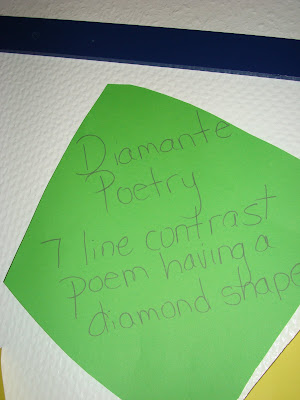 Diamante
Poetry
7 line contrast
poem having a
diamond shape